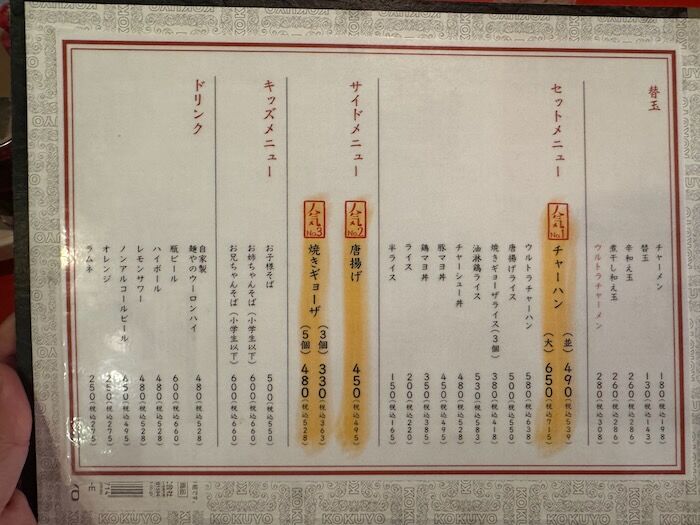 替玉
チャーメン 180(税込198)
替玉 130(税込143)
辛和え玉 260(税込286)
煮干し和え玉 260(税込286)
ウルトラチャーメン 280(税込308)
セットメニュー
人気No.1
チャーハン
(並) 490(税込539)
(大) 650(税込715)
ウルトラチャーハン 580(税込638)
唐揚げライス 500(税込550)
焼きギョーザライス(3個) 380(税込418)
油淋鶏ライス 530(税込583)
チャーシュー丼 480(税込528)
豚マヨ丼 450(税込495)
鶏マヨ丼 350(税込385)
ライス 200(税込220)
半ライス 150(税込165)
サイドメニュー
人気No.2
唐揚げ 450(税込495)
人気No.3
焼きギョーザ
(3個) 330(税込363)
(5個) 480(税込528)
キッズメニュー
お子様そば 500(税込550)
お姉ちゃんそば(小学生以下) 600(税込660)
お兄ちゃんそば(小学生以下) 600(税込660)
ドリンク
自家製
麺やのウーロンハイ 480(税込528)
瓶ビール 600(税込660)
ハイボール 480(税込528)
レモンサワー 480(税込528)
ノンアルコールビール 450(税込495)
オレンジ 250(税込275)
ラムネ 250(税込275)
KOKUYO